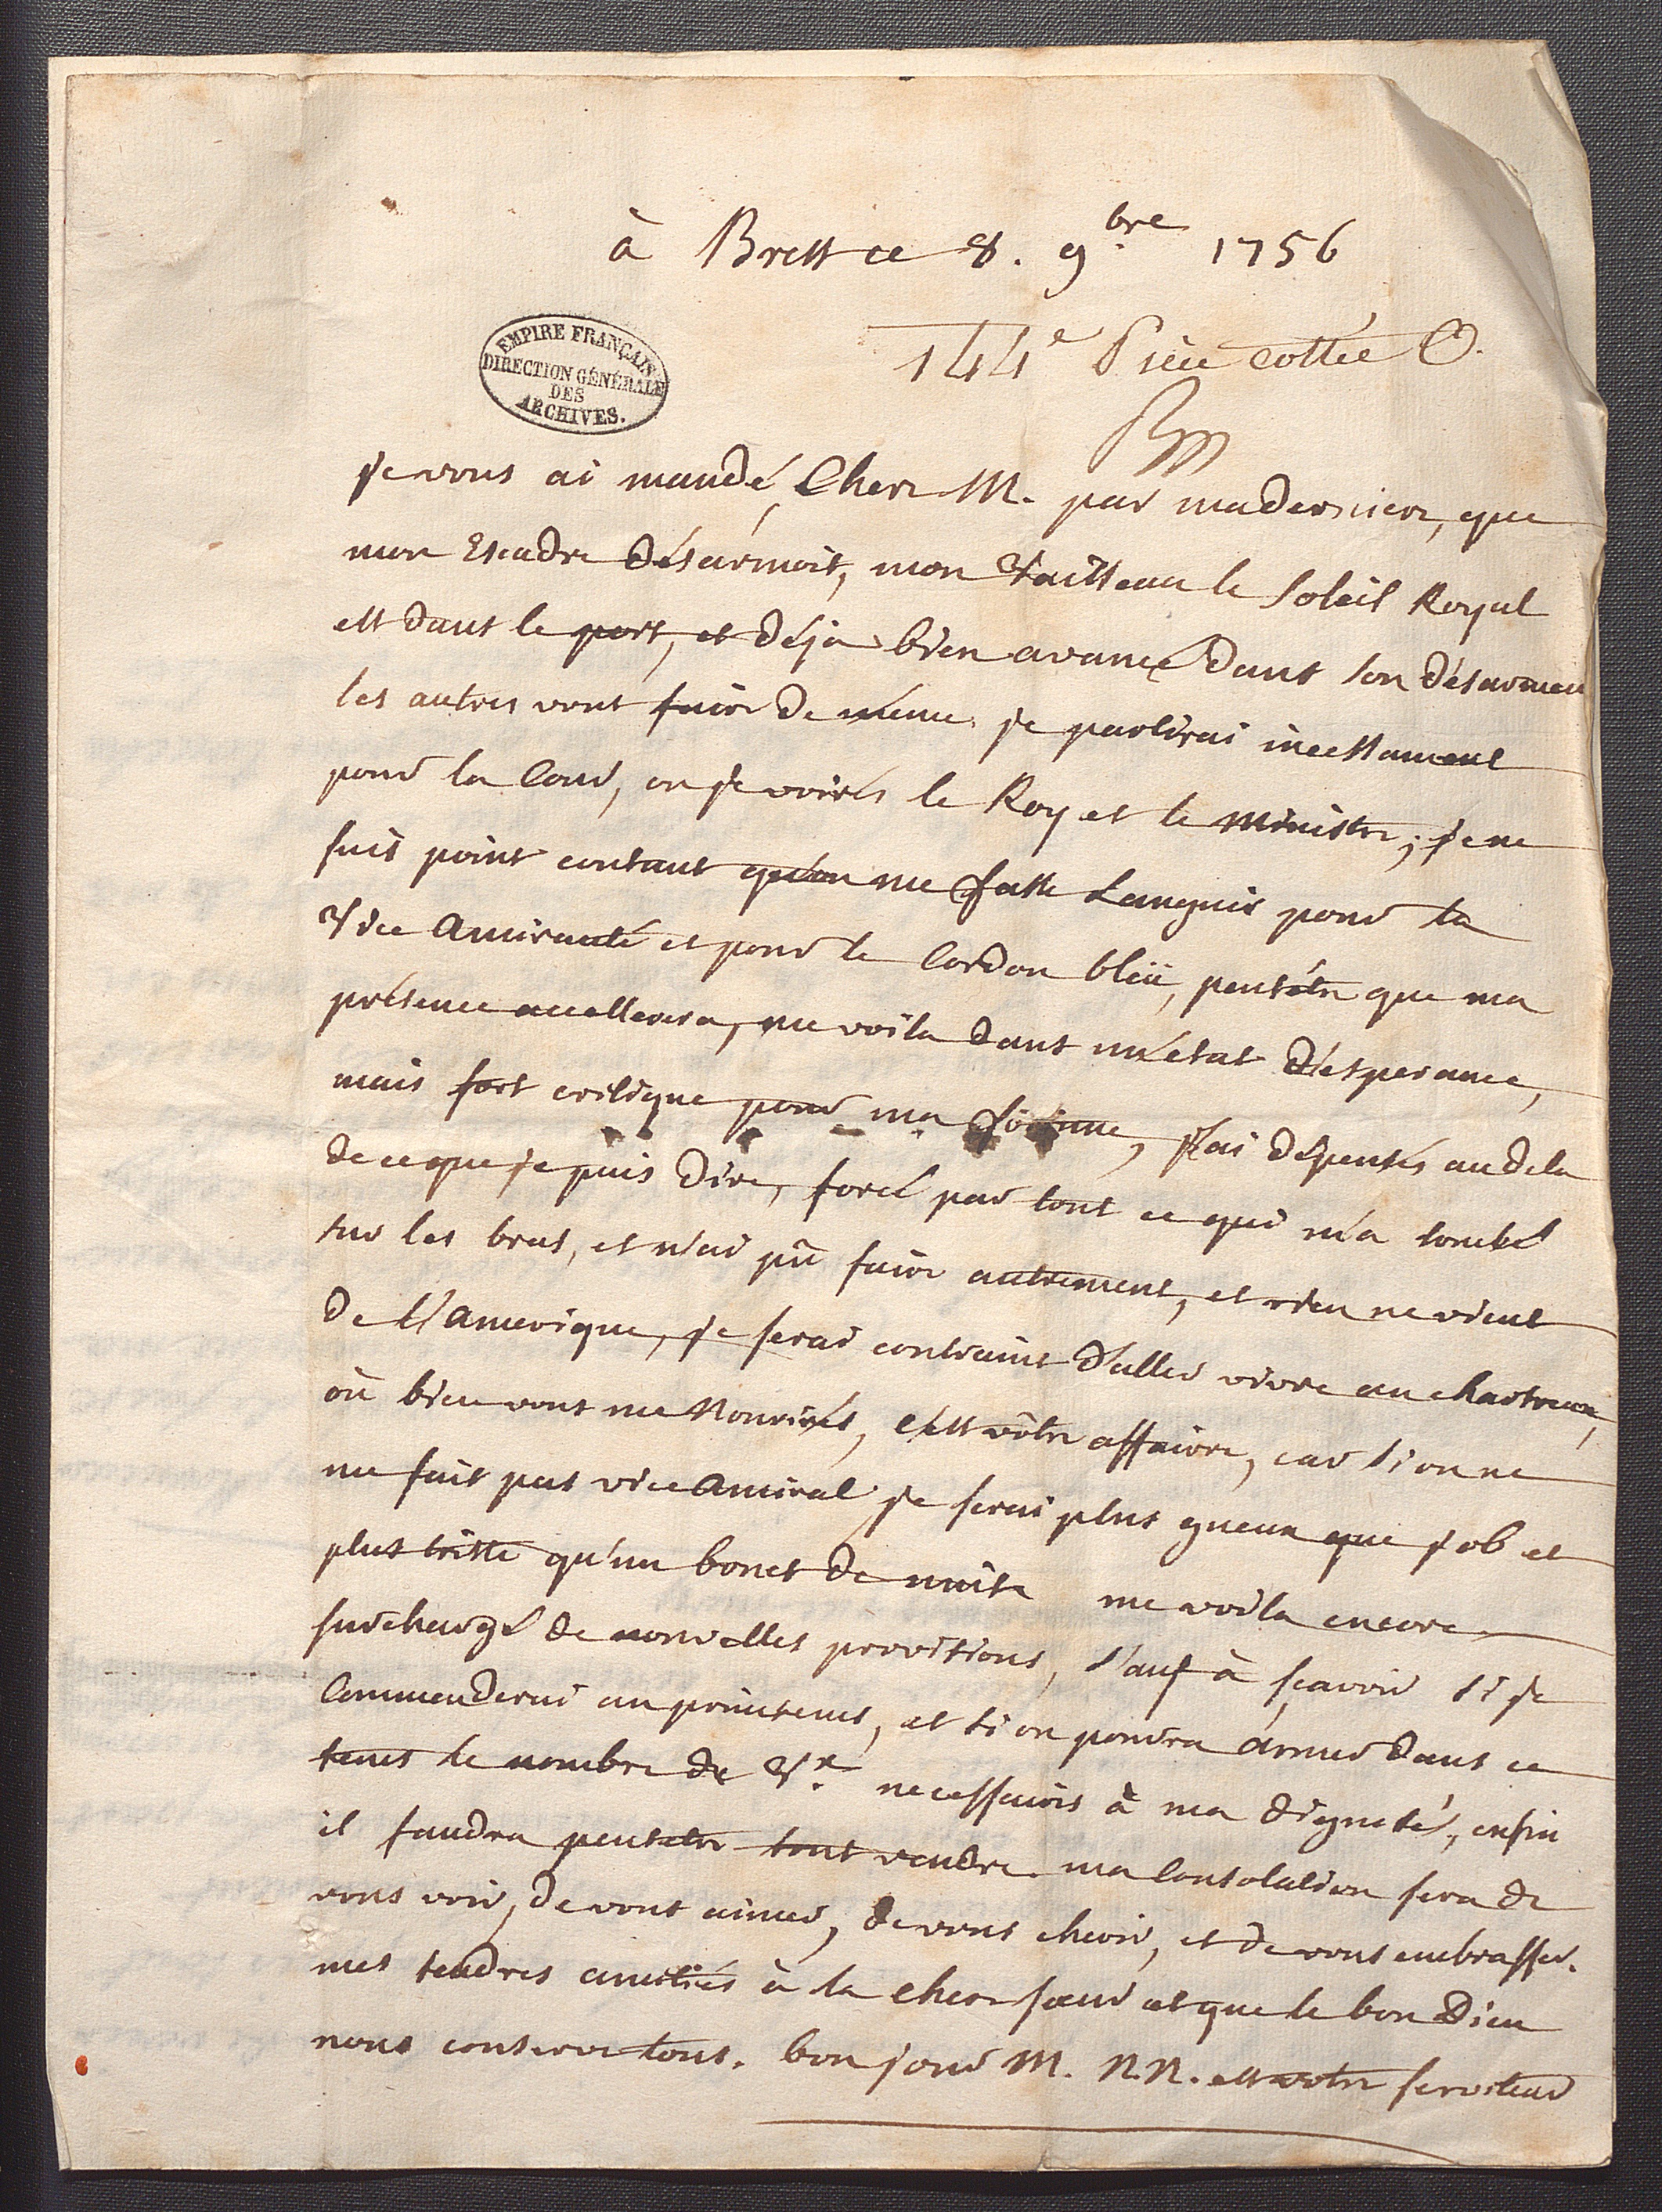 à Brest ce 8. 9bre 1756
EMPIRE FRANÇAIS
DIRECTION GÉNÉRALE
DES
ARCHIVES.
144e Piece cottée O.
je vous ai mandé, Cher M. par ma derniere, que
mon Escadre désarmoit, mon Vaisseau le Soleil Royal
est dans le port, et déja bien avancé dans son désarmem
les autres vont faire de méme, je partirai incessament
pour la Cour, ou je voirés le Roy et le Ministre; je ne
suis point contant qu'on me fasse Languir pour la
Vice Amirauté et pour le Cordon bleü, peutétre que ma
présence accellerera, me voila dans un état d'ésperance,
mais fort critique pour ma fortune, j'ai dépensés au dela
de ce que je puis dire, forcé par tout ce qui m'a tombé
sur les bras, et n'ai pû faire autrement, et rien ne vient
de l'amerique, je serai contraint d'aller vivre au chartreux,
où bien vous me Nourirés, c'est vôtre affaire, car si on ne
me fait pas vice amiral je serai plus gueux que job et
plus triste qu'un bonet de nuit. me voila encore
surchargé de nouvelles provisions, sauf à sçavoir si je
Commenderai au printems, et si on poura armer dans ce
tems le nombre de Vx. necessaire à ma dignité, enfin
il faudra peutetre tout vendre. ma Consolation sera de
vous voir, de vous aimer, de vous cherir, et de vous embrasser.
mes tendres amitiés à la chere soeur et que le bon Dieu
nous conserve tous. bon jour M. N.N. est votre serviteur